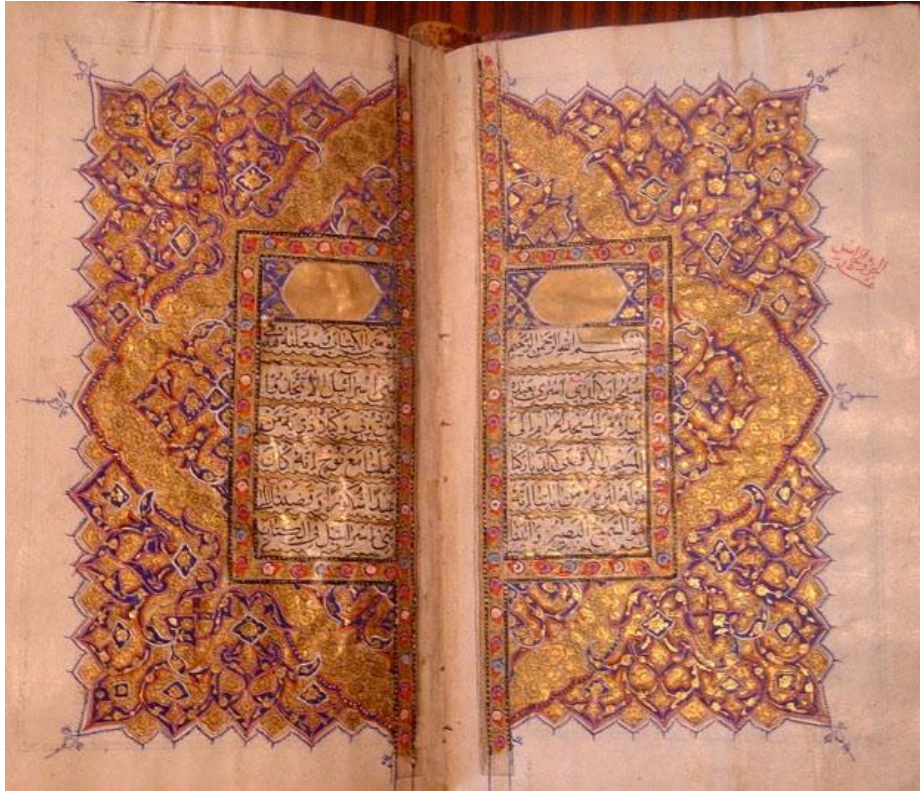 بسم الله الرحمن الرحيم
سبحان الذي اسرى بعبده
ليلا من المسجد الحرام الى
المسجد الاقصى الذي باركنا
حوله لنريه من اياتنا انه
هو السميع البصير واتينا
موسى الكتاب وجعلناه هدى
لبني اسرائيل الا تتخذوا
من دوني وكيلا ذرية من
حملنا مع نوح انه كان
عبدا شكورا وقضينا الى
بني اسرائيل في الكتاب